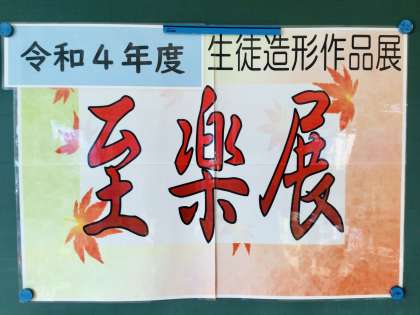 令和4年度 生徒造形作品展
至楽展